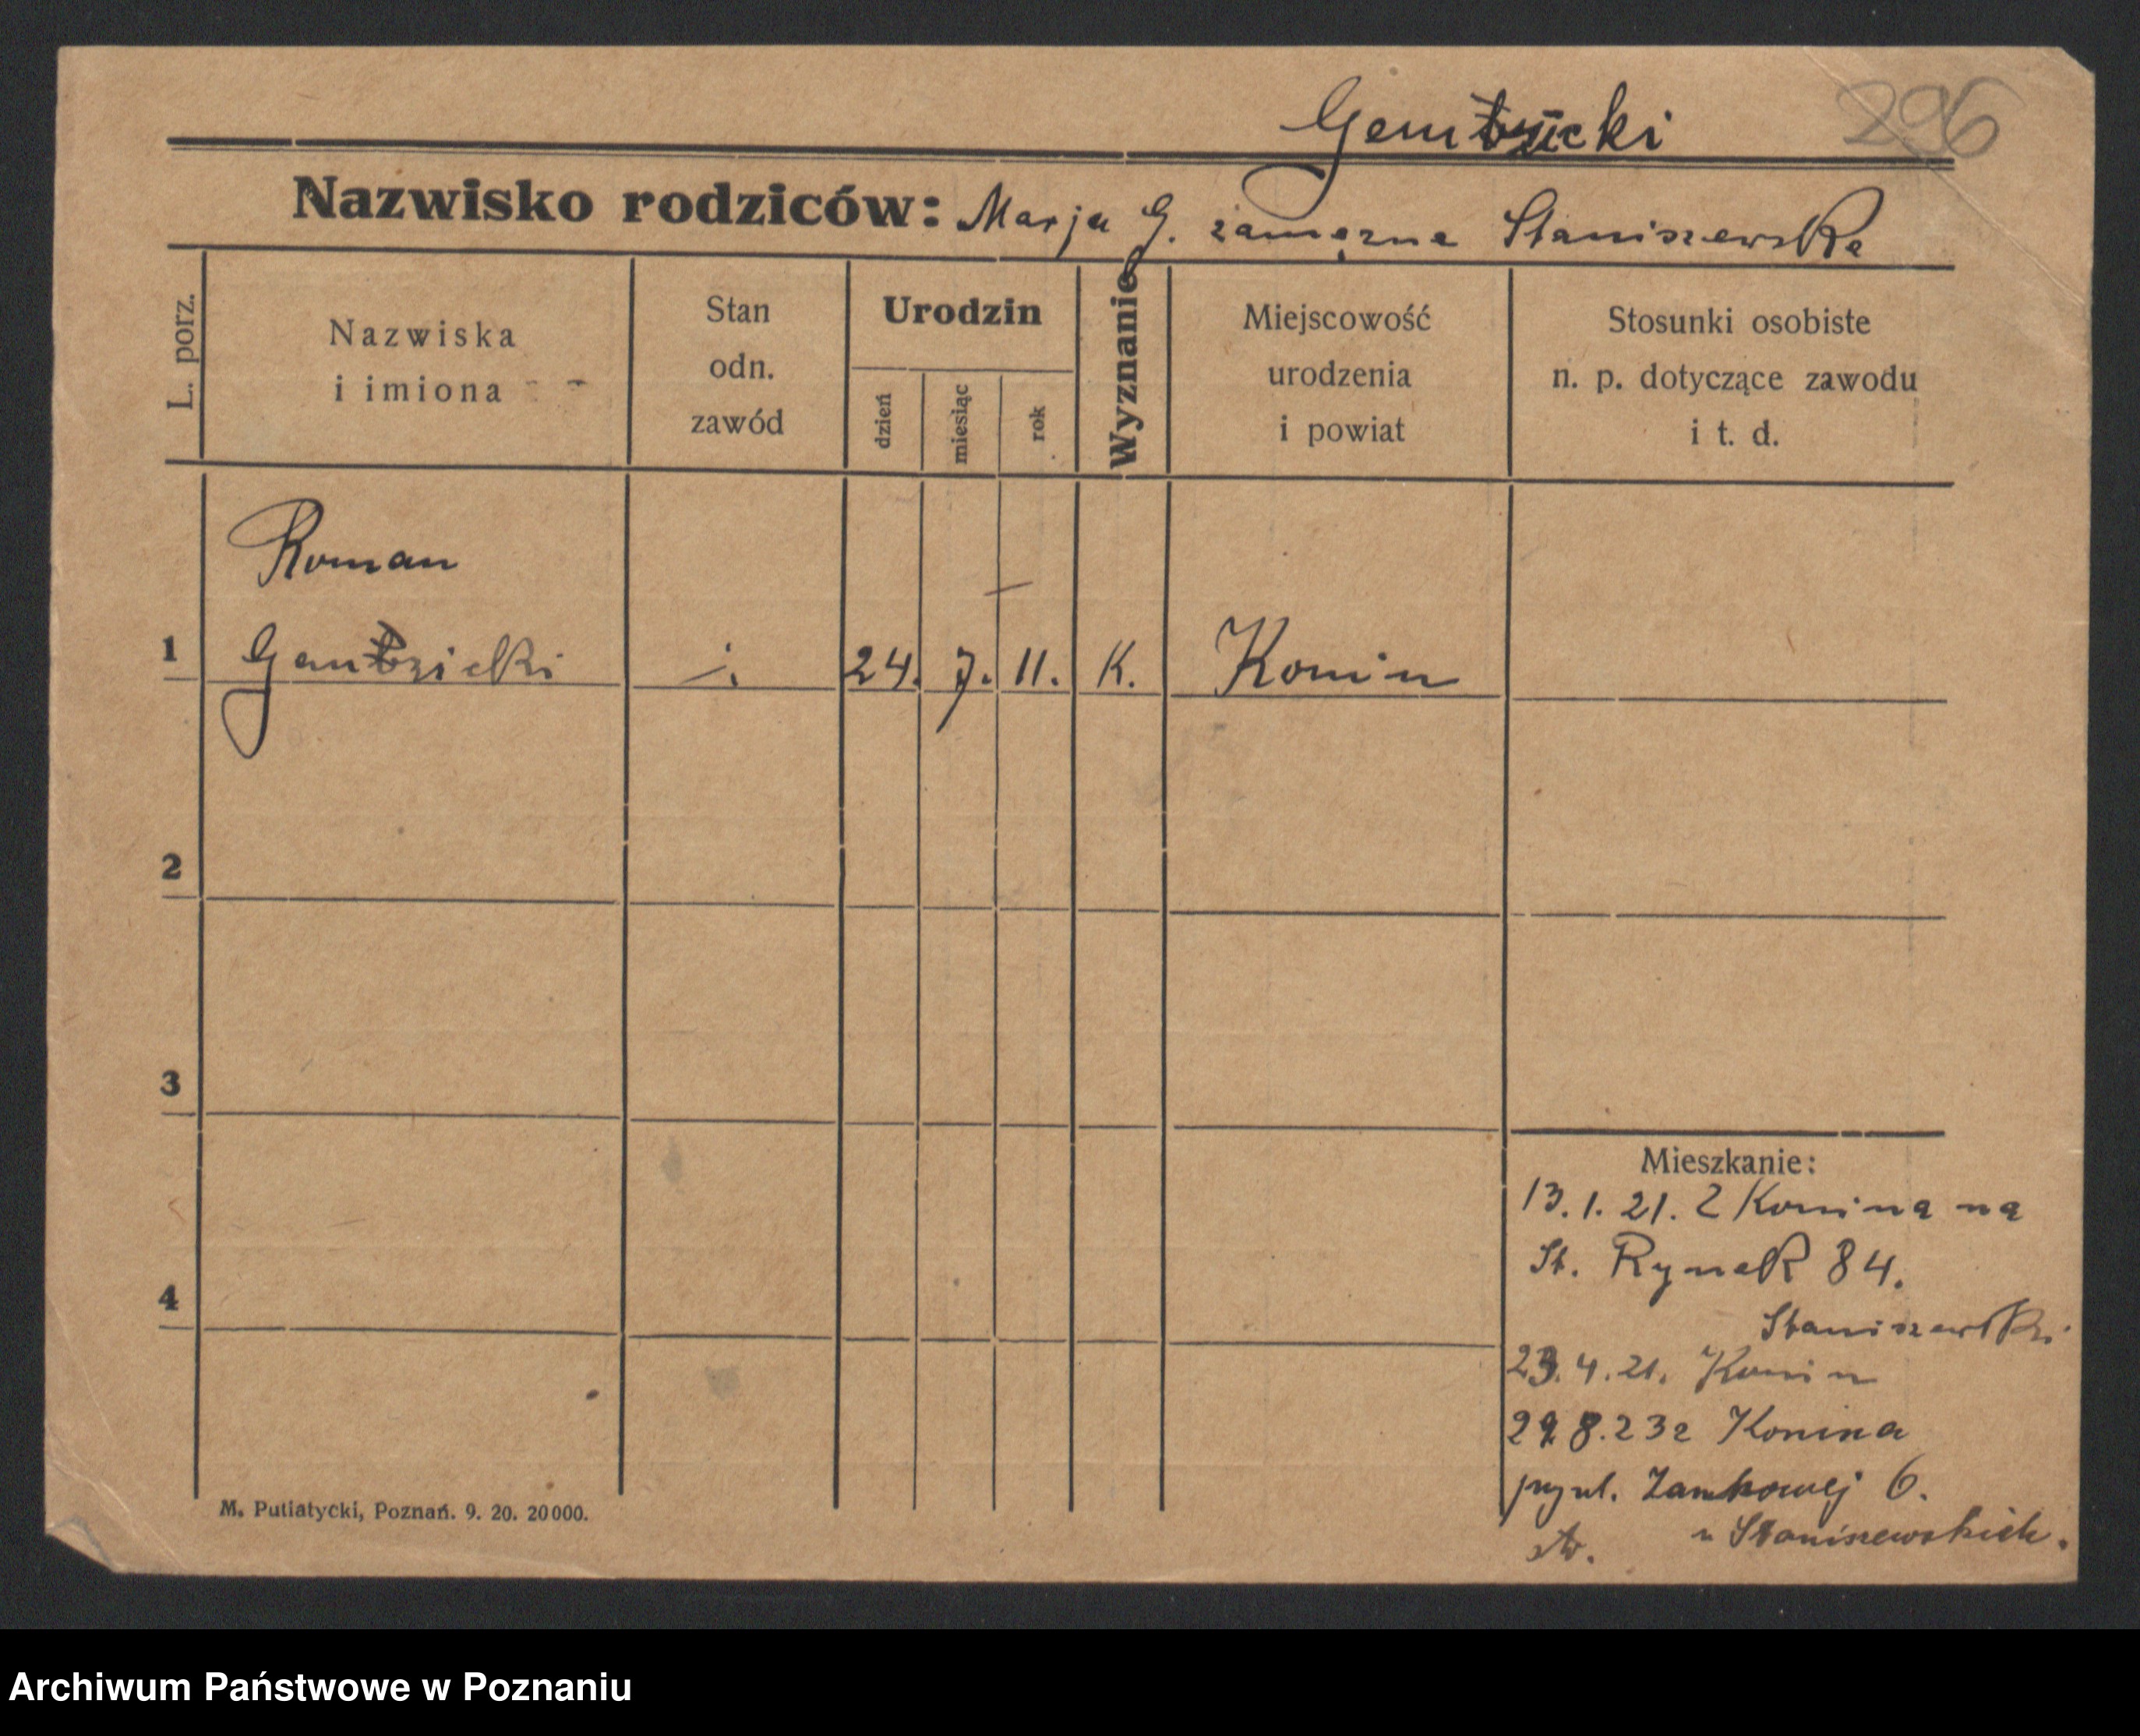 296
Nazwisko rodziców: Marja G. zamężna Staniszewska
L. porz.
Nazwiska
i imiona
Stan
odn.
zawód
Urodzin
dzień
miesiąc
rok
Wyznanie
Miejscowość
urodzenia
i powiat
Stosunki osobiste
n. p. dotyczące zawodu
i t. d.
Roman
1 24. 7. 11. K. Konin
2
3
4
Mieszkanie:
13. 1. 21. Z Konina na
St. Rynek 84.
Staniszewski
23. 4. 21. Konin
29 8. 23 z Konina
przy ul. Zamkowej 6.
u Staniszewskich.
M. Putiatycki, Poznań. 9. 20. 20000.
Archiwum Państwowe w Poznaniu